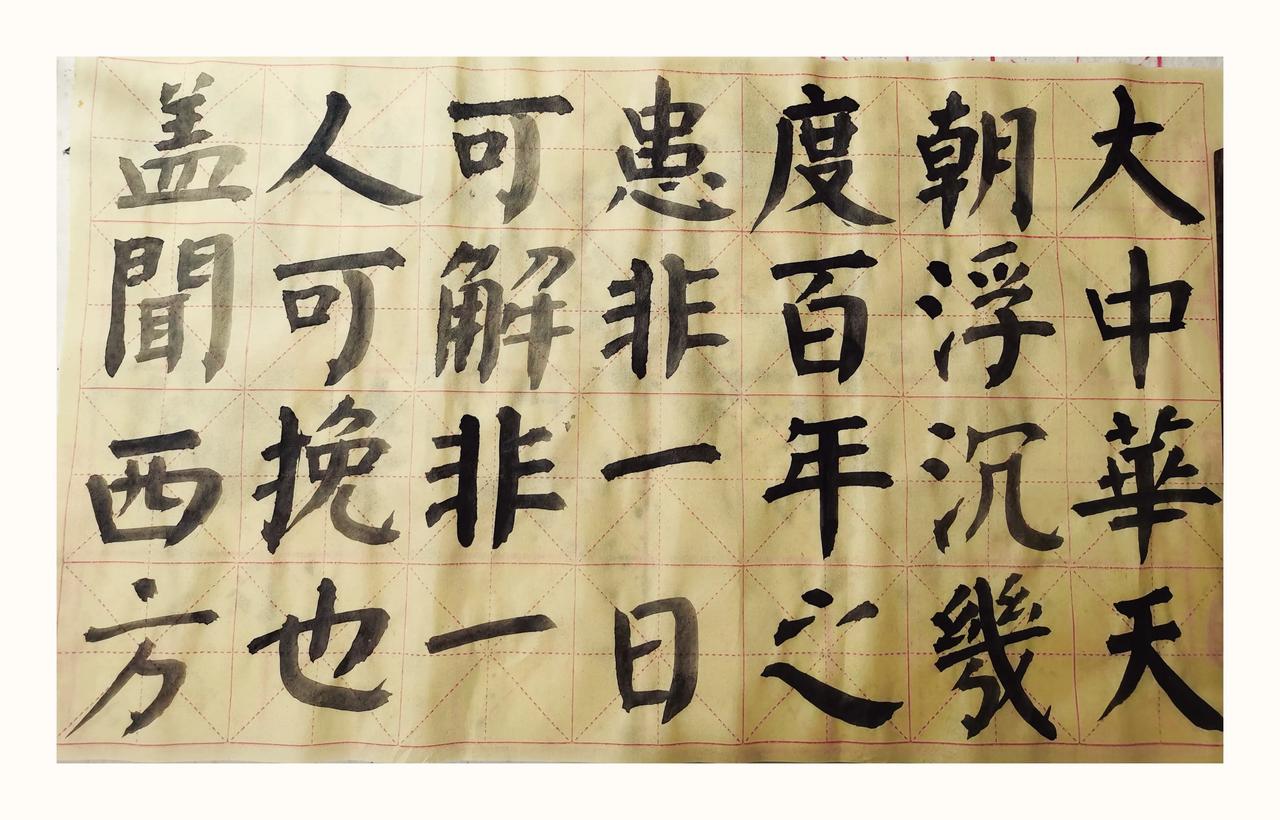 大中華天
朝浮沉幾
度百年之
患非一日
可解非一
人可挽也
盖聞西方